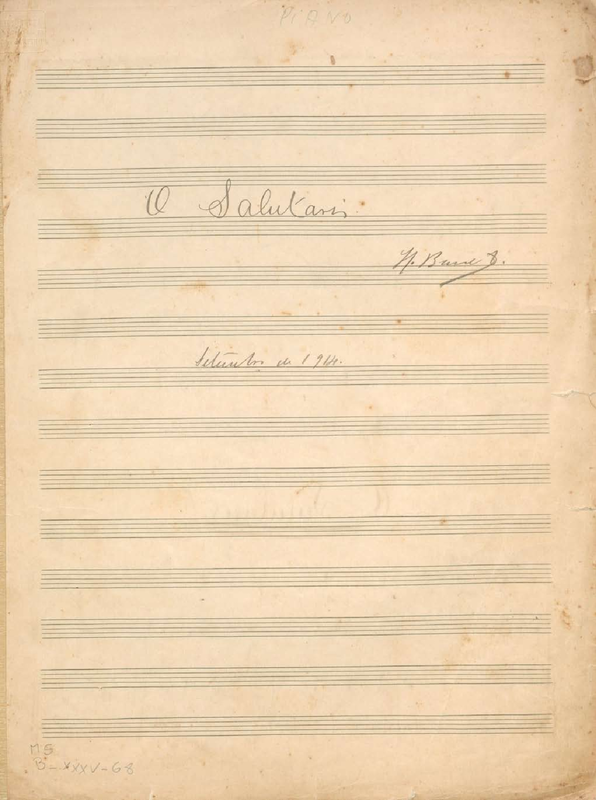 PIANO
O Salutaris
Setembro de 1914.
MS
B-XXXV-68